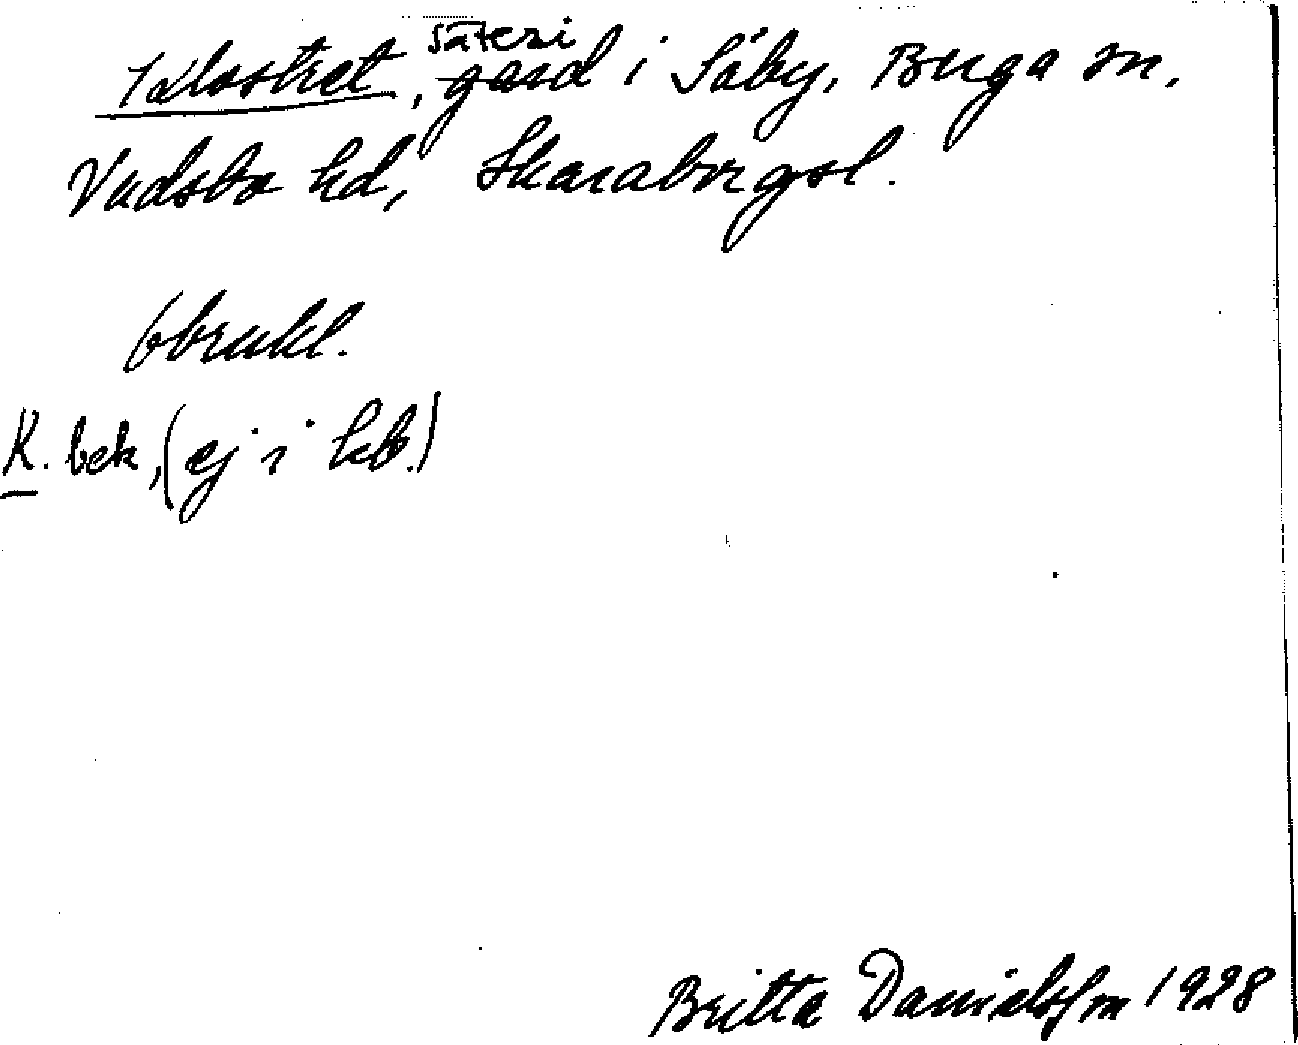 Klostret, säteri gård i Säby, Berga sn,
Vadsbo hd, Skaraborgsl.
obrukl.
K. bek, (ej i kb.)
Britta Danielsson 1928